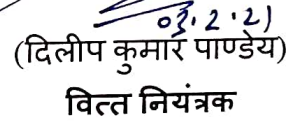 03.2.21
(दिलीप कुमार पाण्डेय)
वित्त नियंत्रक